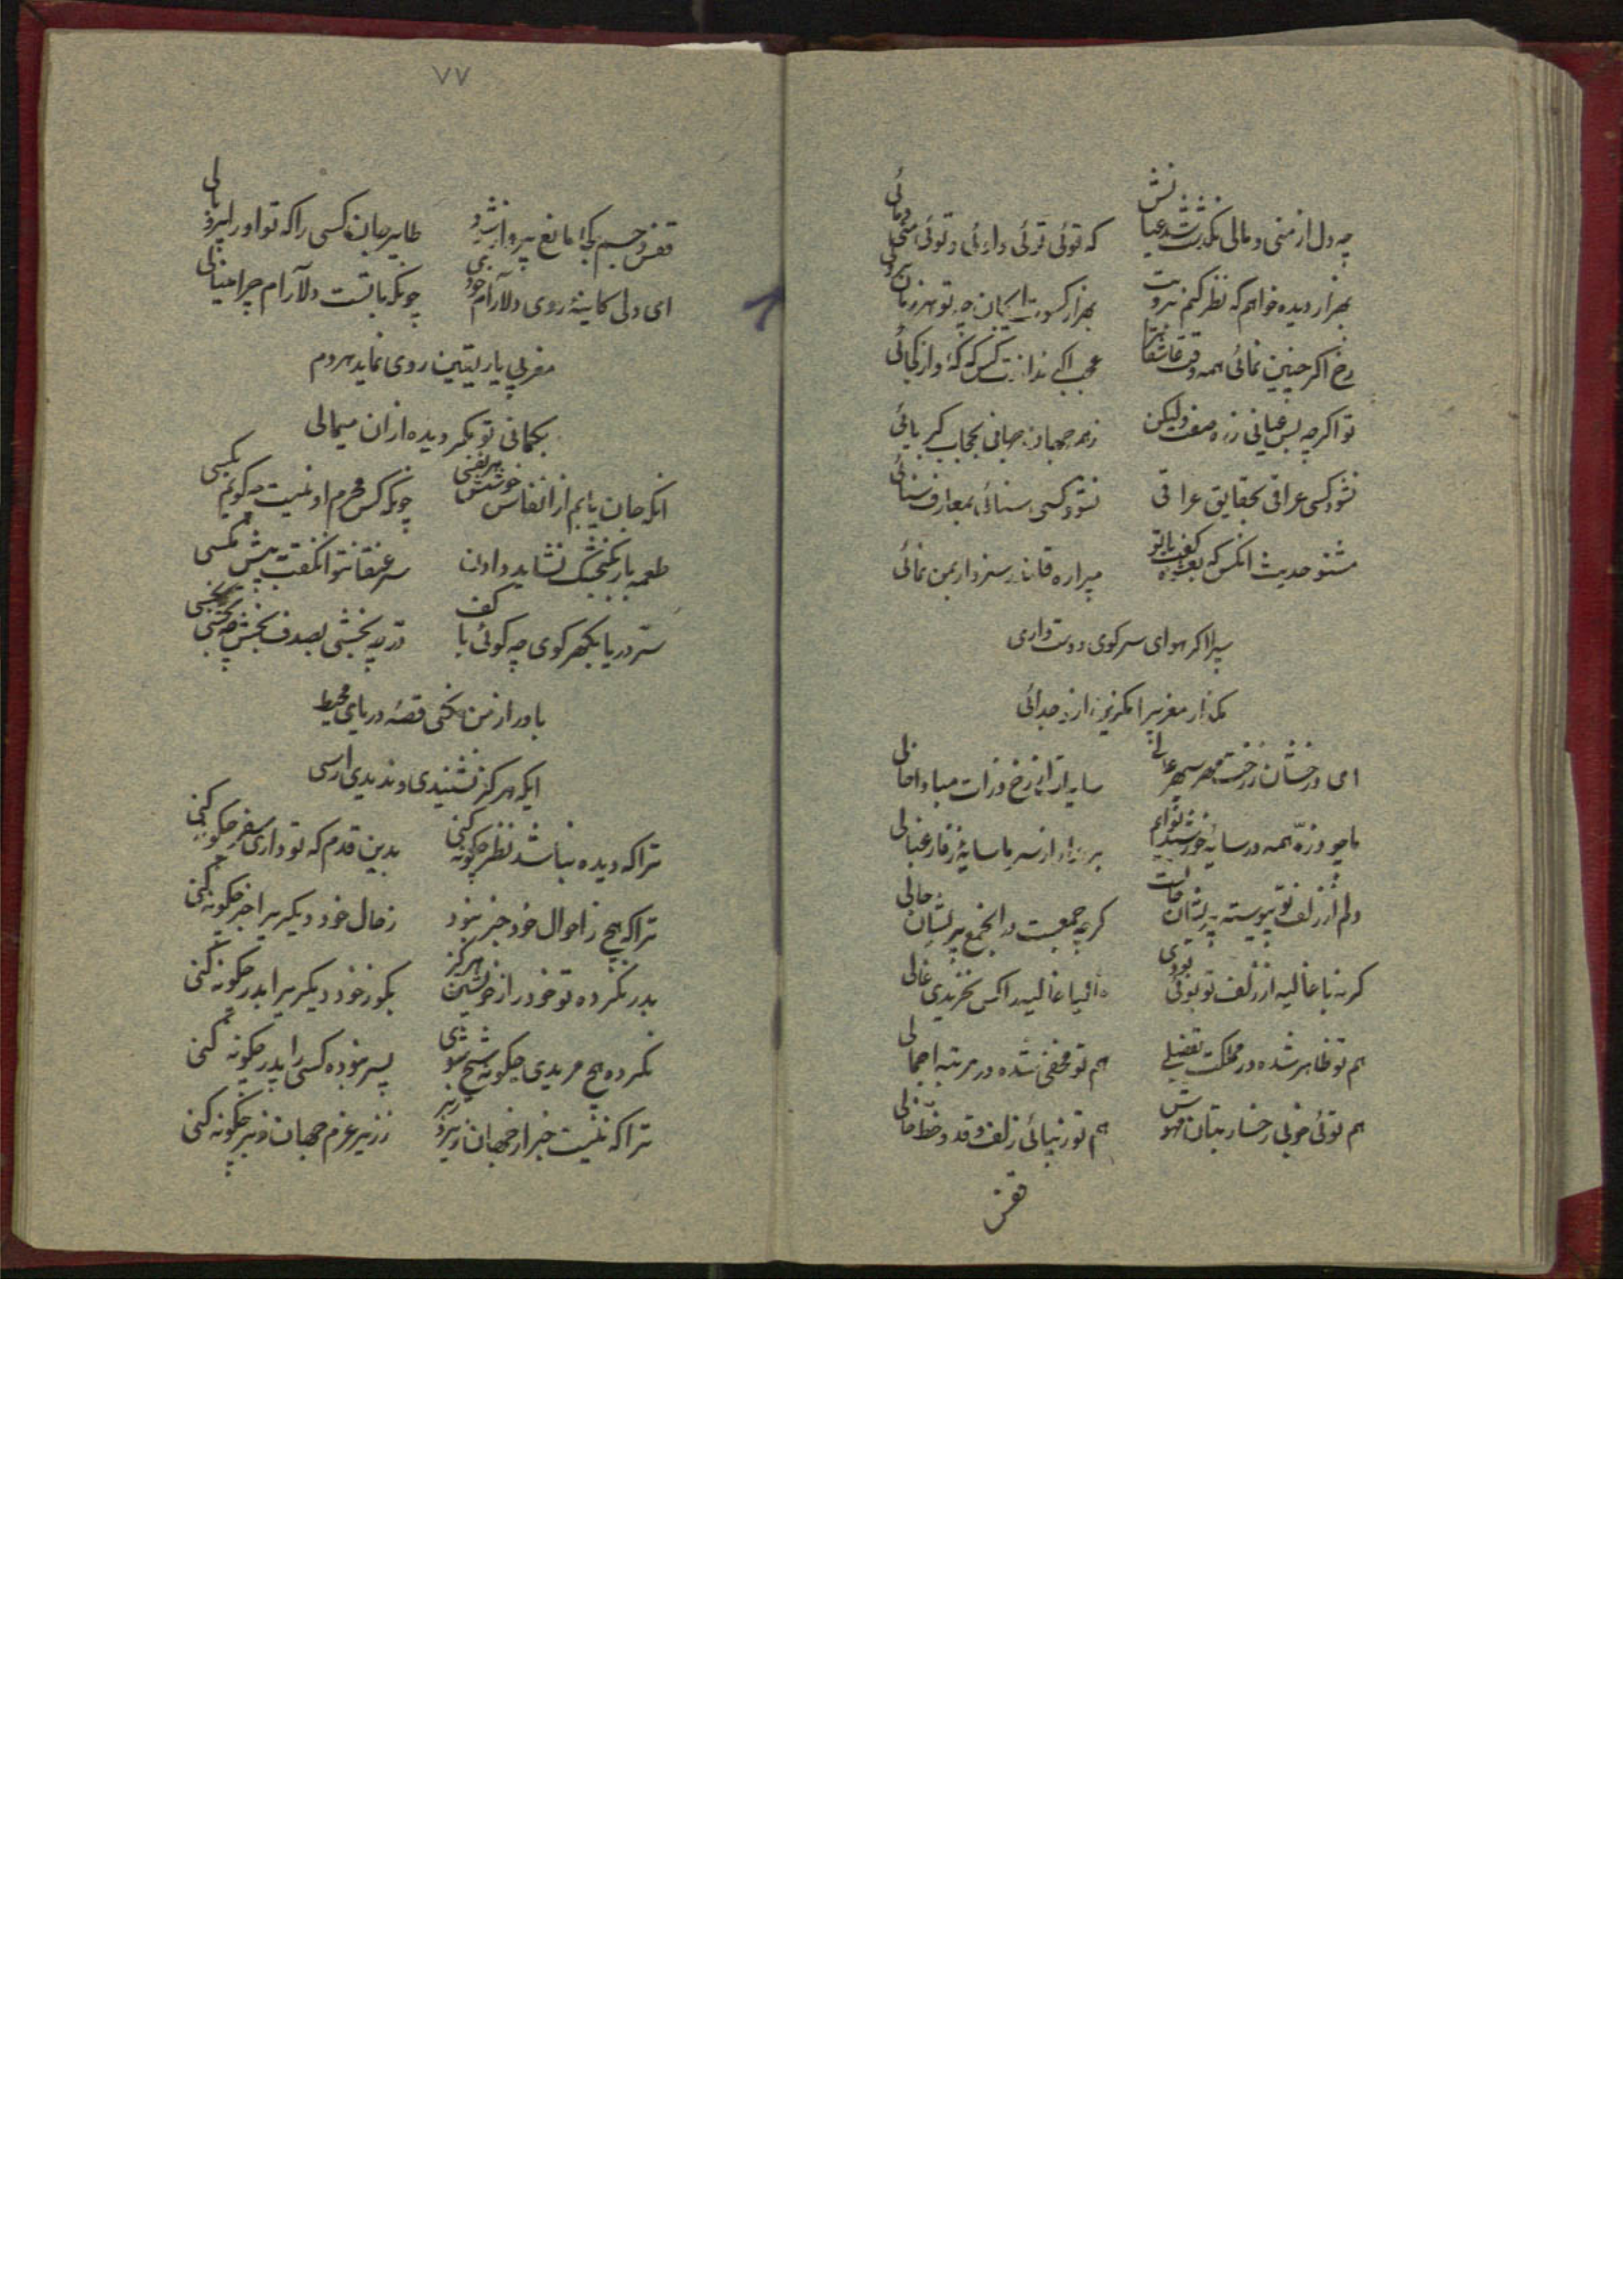 چه دل از منی و مائی بگذشت شد عیانش که توئی توئی و اوئی و توئی منی و مائی
بهزار دیده خواهم که نظر کنم برویت بهزار کسوت ای جان چه تو هر زمان برآئی
رخ اگر چنین نمائی همه وقت عاشقانرا عجب اگر نداندت کس که که و از کجائی
تو اگر چه بس عیانی ز ره صفت ولیکن ز همه جهان نهانی بحجاب کبریائی
نشود کسی عراقی بحقایق عراقی نشود کسی سنائی بمعارف سنائی
مشنو حدیث انکس که بعشوه گفت با تو پسرا ره قلندر سزد ار بمن نمائی
پسرا اگر هوای سر کوی دوست داری
بگذار مغربیرا که نیرزد از جدائی
ای درخشان ز رخت مهر سپهر عالی سایهٔ زان رخ و ذرات مبادا خالی
ما چو ذره همه در سایهٔ خورشید توایم بر مدار از سر ما سایهٔ ز فارغبالی
دلم از زلف تو پیوسته پریشان حالست گر چه جمعیت دل جمع پریشان حالی
گر نه با غالیه از زلف تو بوئی بودی غالیا غالیه را کس نخریدی غالی
هم تو ظاهر شده در مملکت تفصیلی هم تو مخفی شده در مرتبه اجمالی
هم توئی خوبی رخسار بتان مهوش هم تو زیبائی زلف و قد و خط و خالی
قفس
۷۷
قفس جسم کجا مانع پرواز شود طایر جان کسی را که تو اورا پر و بالی
ای دلی کاینهٔ روی دلارام خودی چونکه با تست دلآرام چرا مینالی
مغربی یار یقین روی نماید هردم
بگمانی تو مگر دیده از ان میمالی
انکه جان یابم از انفاس خوشش هر نفسی چونکه کس محرم او نیست چه گویم بکسی
طعمه باز بکنجشک نشاید دادن سر عنقا نتوانگفت بپیش مگسی
سرّ دریا بکهر کوی چه کوئی با کف درّ چه بخشی بصدف بخش چه بخشی بخسی
باور از من نکنی قصهٔ دریای محیط
ایکه هرکز نشنیدی و ندیدی ارسی
ترا که دیده نباشد نظر چکونه کنی بدین قدم که تو داری سفر چکونه کنی
ترا که هیچ ز احوال خود خبر نبود ز حال خود دیگریرا خبر چکونه کنی
بدر نکرده تو خود را ز خویشتن هرگز بگو ز خود دیگریرا بدر چکونه کنی
نکرده هیچ مریدی چکونه شیخ شوی پسر نبوده کسی را پدر چکونه کنی
ترا که نیست خبر از جهان زیر و زبر ز زیر عزم جهان زبر چکونه کنی